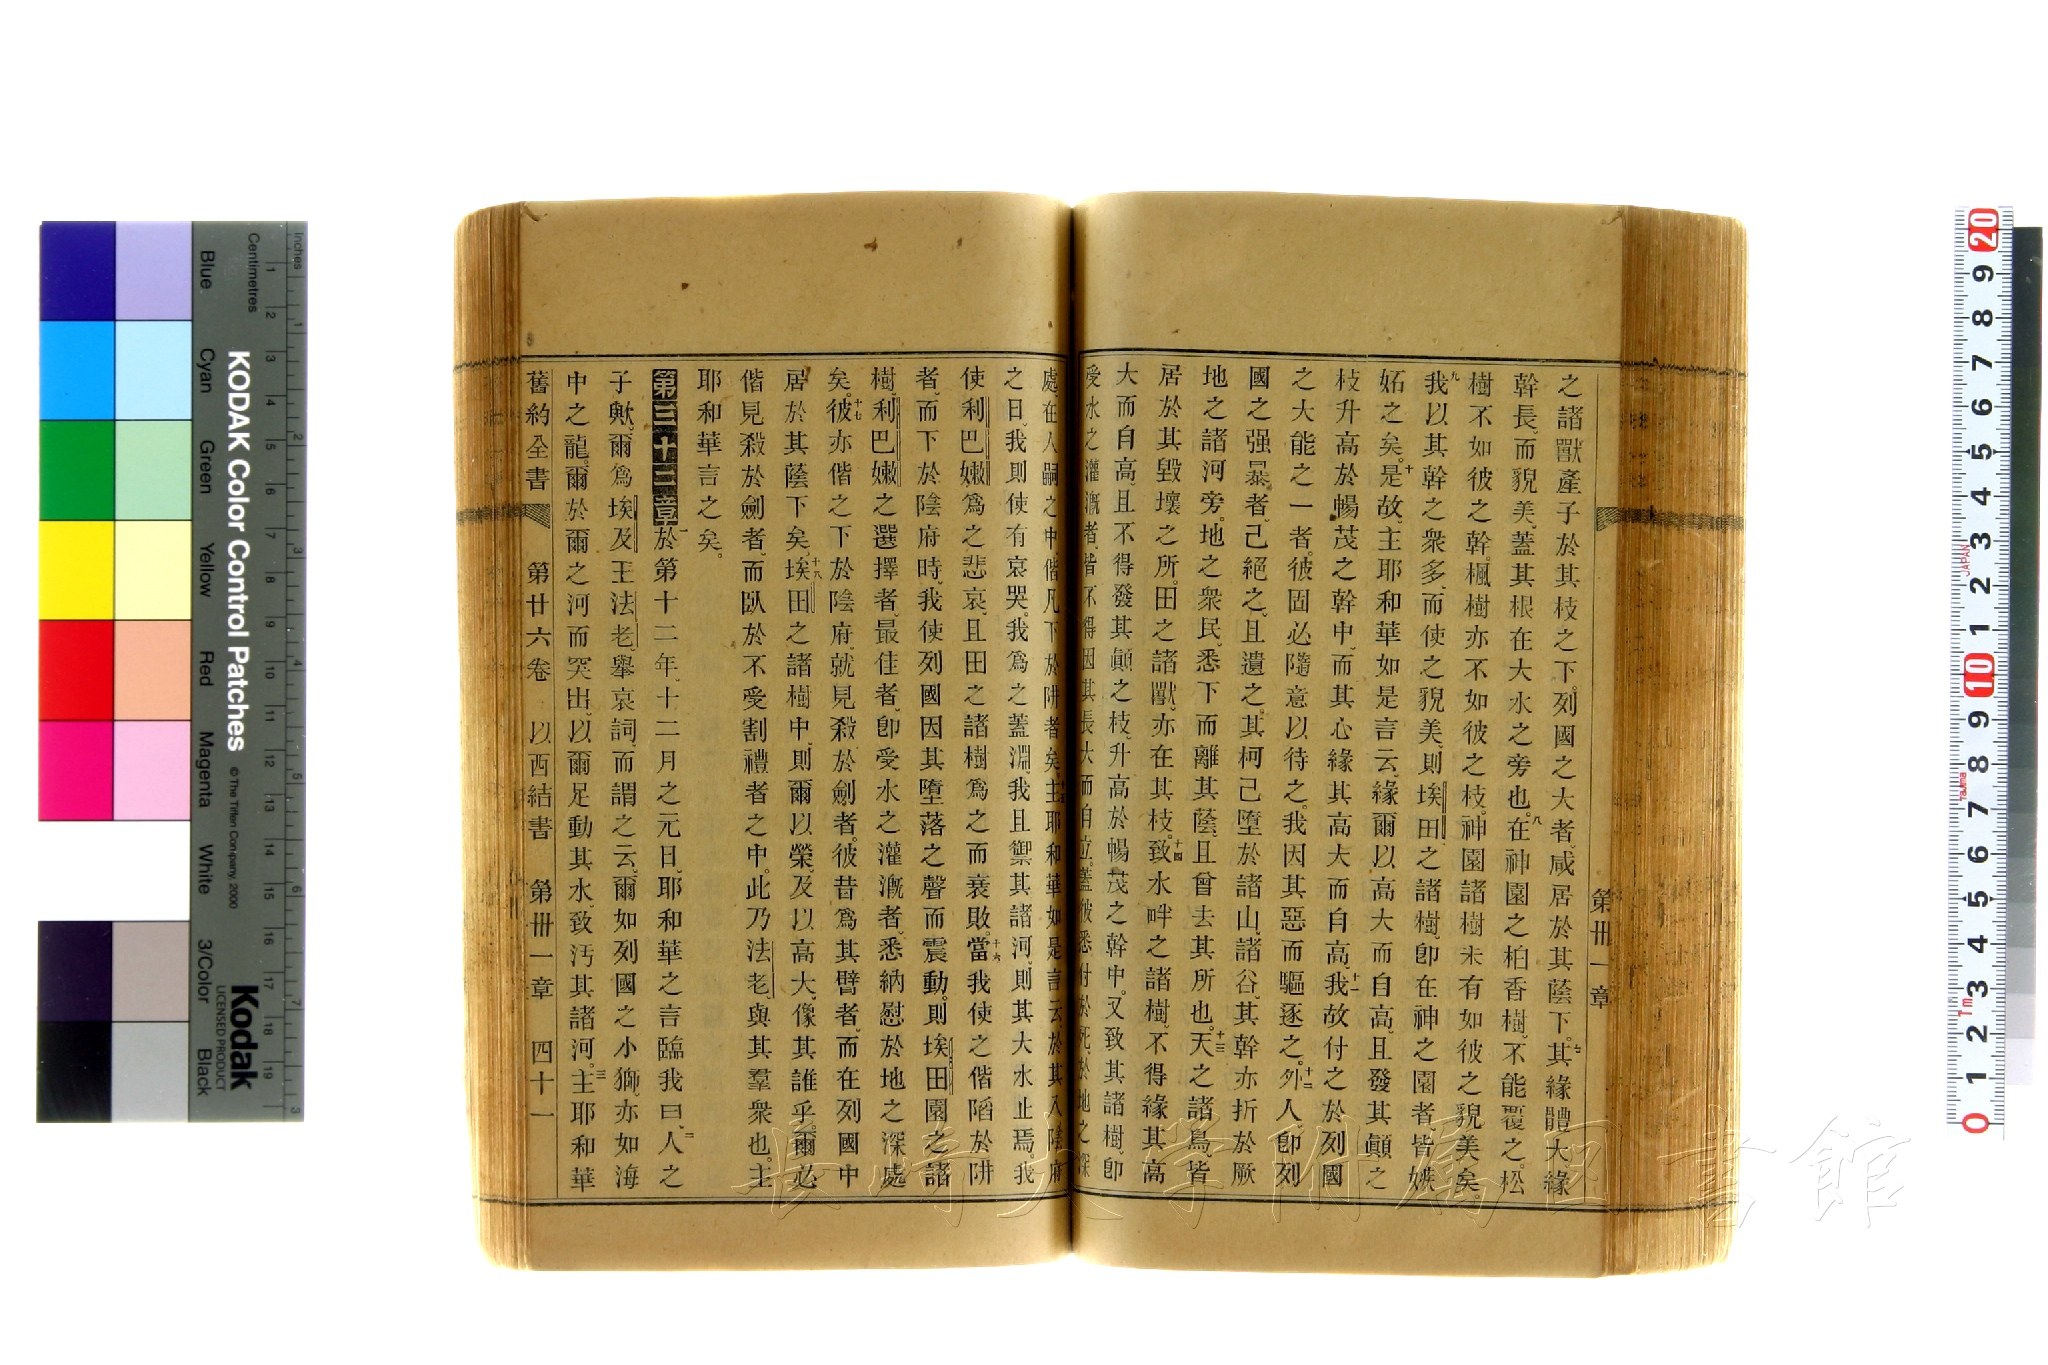 第卅一章
之諸獸產子於其枝之下。列國之大者、咸居於其蔭下。七其緣體大緣
幹長、而貌美、蓋其根在大水之旁也。八在神園之柏香樹、不能覆之。松
樹不如彼之幹、楓樹亦不如彼之枝。神園諸樹未有如彼之貌美矣。
九我以其幹之衆多、而使之貌美、則埃田之諸樹、即在神之園者、皆嫉
妬之矣。十是故、主耶和華如是言云、緣爾以高大而自高、且發其顛之
枝升高於暢茂之幹中、而其心緣其高大而自高、十一我故付之於列國
之大能之一者。彼固必隨意以待之。我因其惡而驅逐之。十二外人、即列
國之强暴者、己絕之、且遺之。其柯己墮於諸山、諸谷、其幹亦折於厥
地之諸河旁。地之衆民、悉下而離其蔭、且曾去其所也。十三天之諸鳥、皆
居於其毀壞之所。田之諸獸、亦在其枝。十四致水畔之諸樹、不得緣其高
大而自高、且不得發其顛之枝、升高於暢茂之幹中。又致其諸樹、即
受水之灌漑者、皆不得因其長大而自立。蓋彼悉付於死、於地之深
處、在人嗣之中、偕凡下於阱者矣。主耶和華如是言云、於其入陰府
之日、我則使有哀哭。我爲之蓋淵、我且禦其諸河、則其大水止焉。我
使利巴嫩爲之悲哀、且田之諸樹爲之而衰敗。十六當我使之偕陷於阱
者、而下於陰府時、我使列國因其墮落之聲而震動。則埃田園之諸
樹、利巴嫩之選擇者、最佳者、即受水之灌漑者、悉納慰於地之深處
矣。十七彼亦偕之下於陰府、就見殺於劍者。彼昔爲其臂者、而在列國中
居於其蔭下矣。十八埃田之諸樹中、則爾以榮、及以高大、像其誰乎。爾必
偕見殺於劍者、而臥於不受割禮者之中。此乃法老、與其羣衆也。主
耶和華言之矣。
第三十二章一於第十二年、十二月之元日、耶和華之言臨我曰、二人之
子歟、爾爲埃及王法老、舉哀詞、而謂之云、爾如列國之小獅、亦如海
中之龍。爾於爾之河而突出、以爾足動其水致汚其諸河。三主耶和華
舊約全書　第廿六卷　以西結書　第卅一章　四十一
長崎大学附属図書館
KODAK Color Control Patches
© The Tiffen Company, 2000
Kodak
LICENSED PRODUCT
Inches
Centimetres
Blue
Cyan
Green
Yellow
Red
Magenta
White
3/Color
Black
1 2 3 4 5 6 7 8 9 10 11 12 13 14 15 16 17 18 19
1 2 3 4 5 6 7 3
20 9 8 7 6 5 4 3 2 1 10 9 8 7 6 5 4 3 2 1 0
JAPAN
Tajima
7m